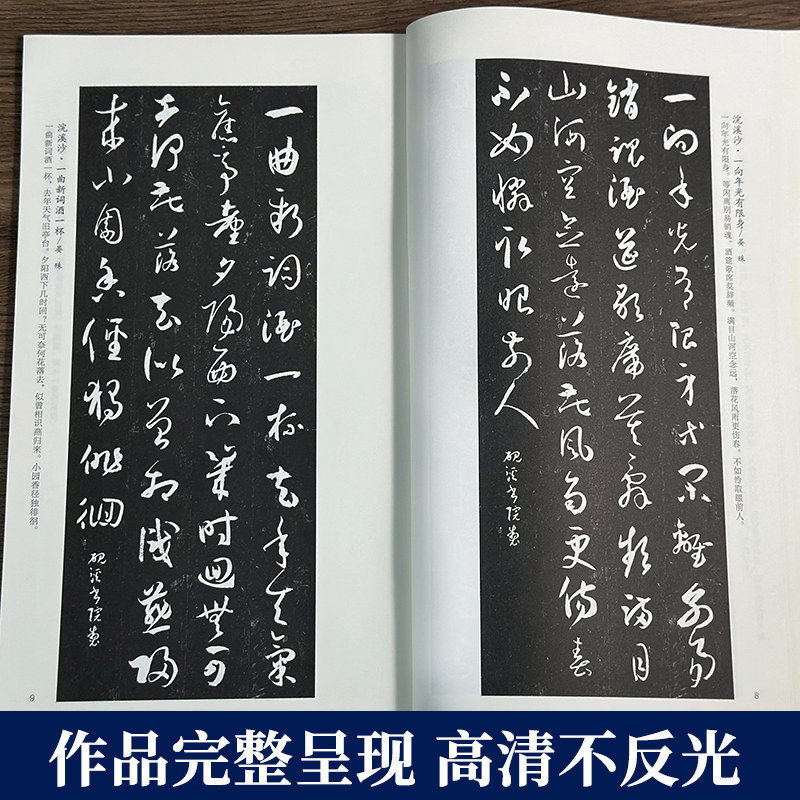 浣溪沙·一向年光有限身/晏 殊
一向年光有限身。等闲离别易销魂。酒筵歌席莫辞频。满目山河空念远，落花风雨更伤春。不如怜取眼前人。
一向年光有限身等闲離别易
銷魂酒筵歌席莫辞频满目
山河空念遠落花風雨更傷春
不如憐取眼前人
砚溪书院
8
一曲新詞酒一杯去年天氣
舊亭臺夕陽西下幾時回無可
奈何花落去似曾相識燕歸
来小園香徑獨徘徊
砚溪书院
浣溪沙·一曲新词酒一杯/晏 殊
一曲新词酒一杯，去年天气旧亭台。夕阳西下几时回？无可奈何花落去，似曾相识燕归来。小园香径独徘徊。
9
作品完整呈现 高清不反光